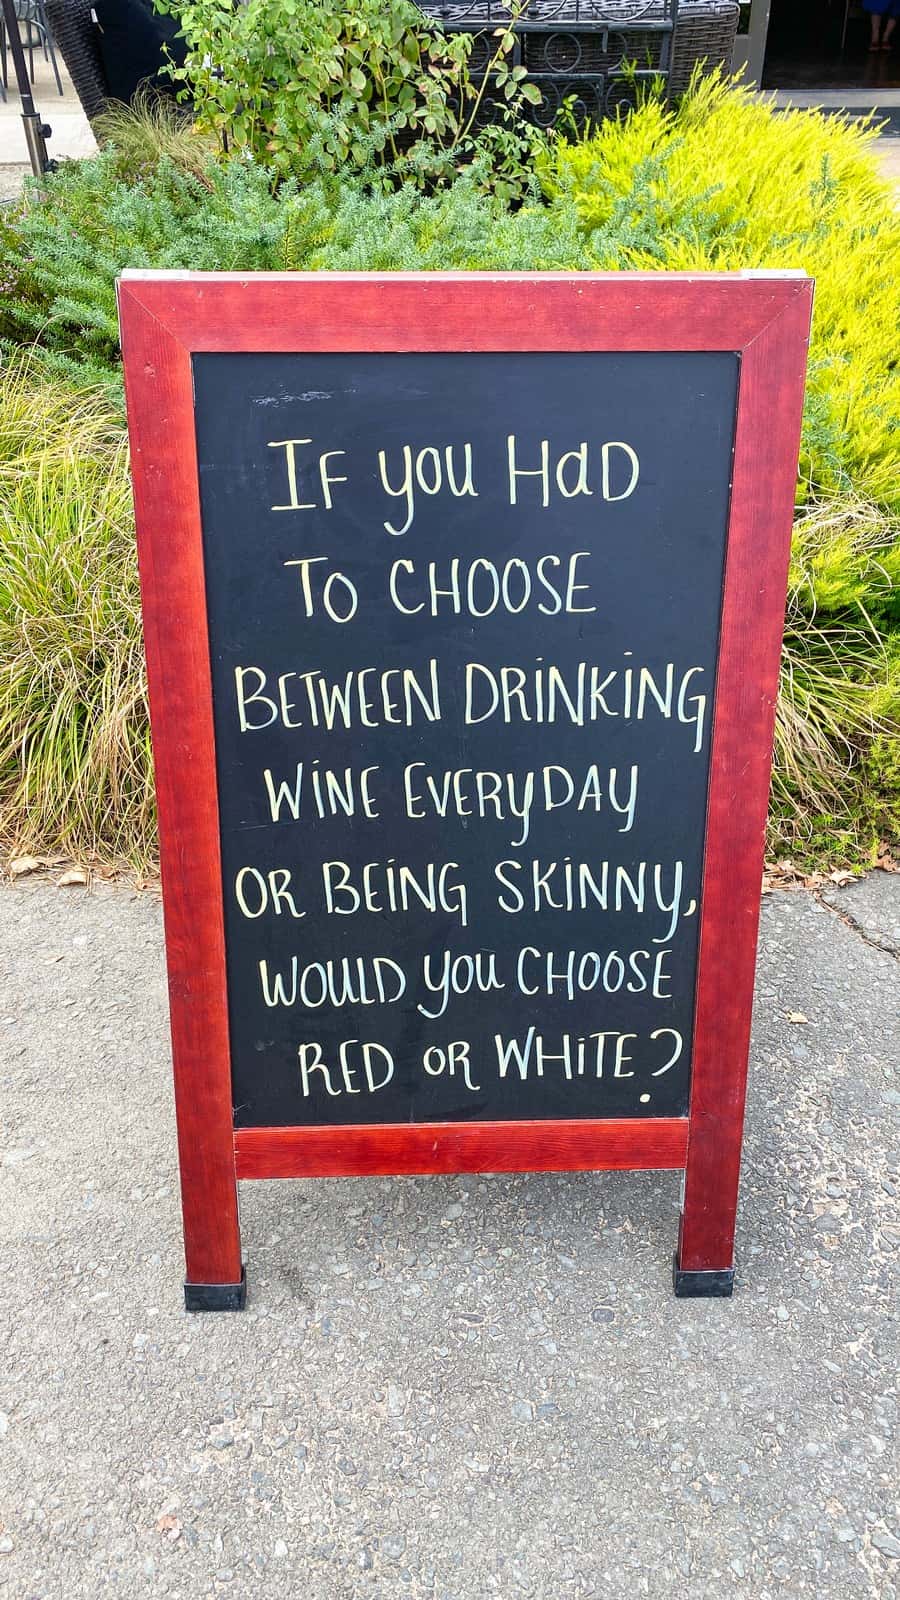 If you Had
To CHOOSE
BETWEEN DRINKING
WINE EVERYDAY
OR BEING SKINNY,
WOULD you CHOOSE
RED OR WHITE?